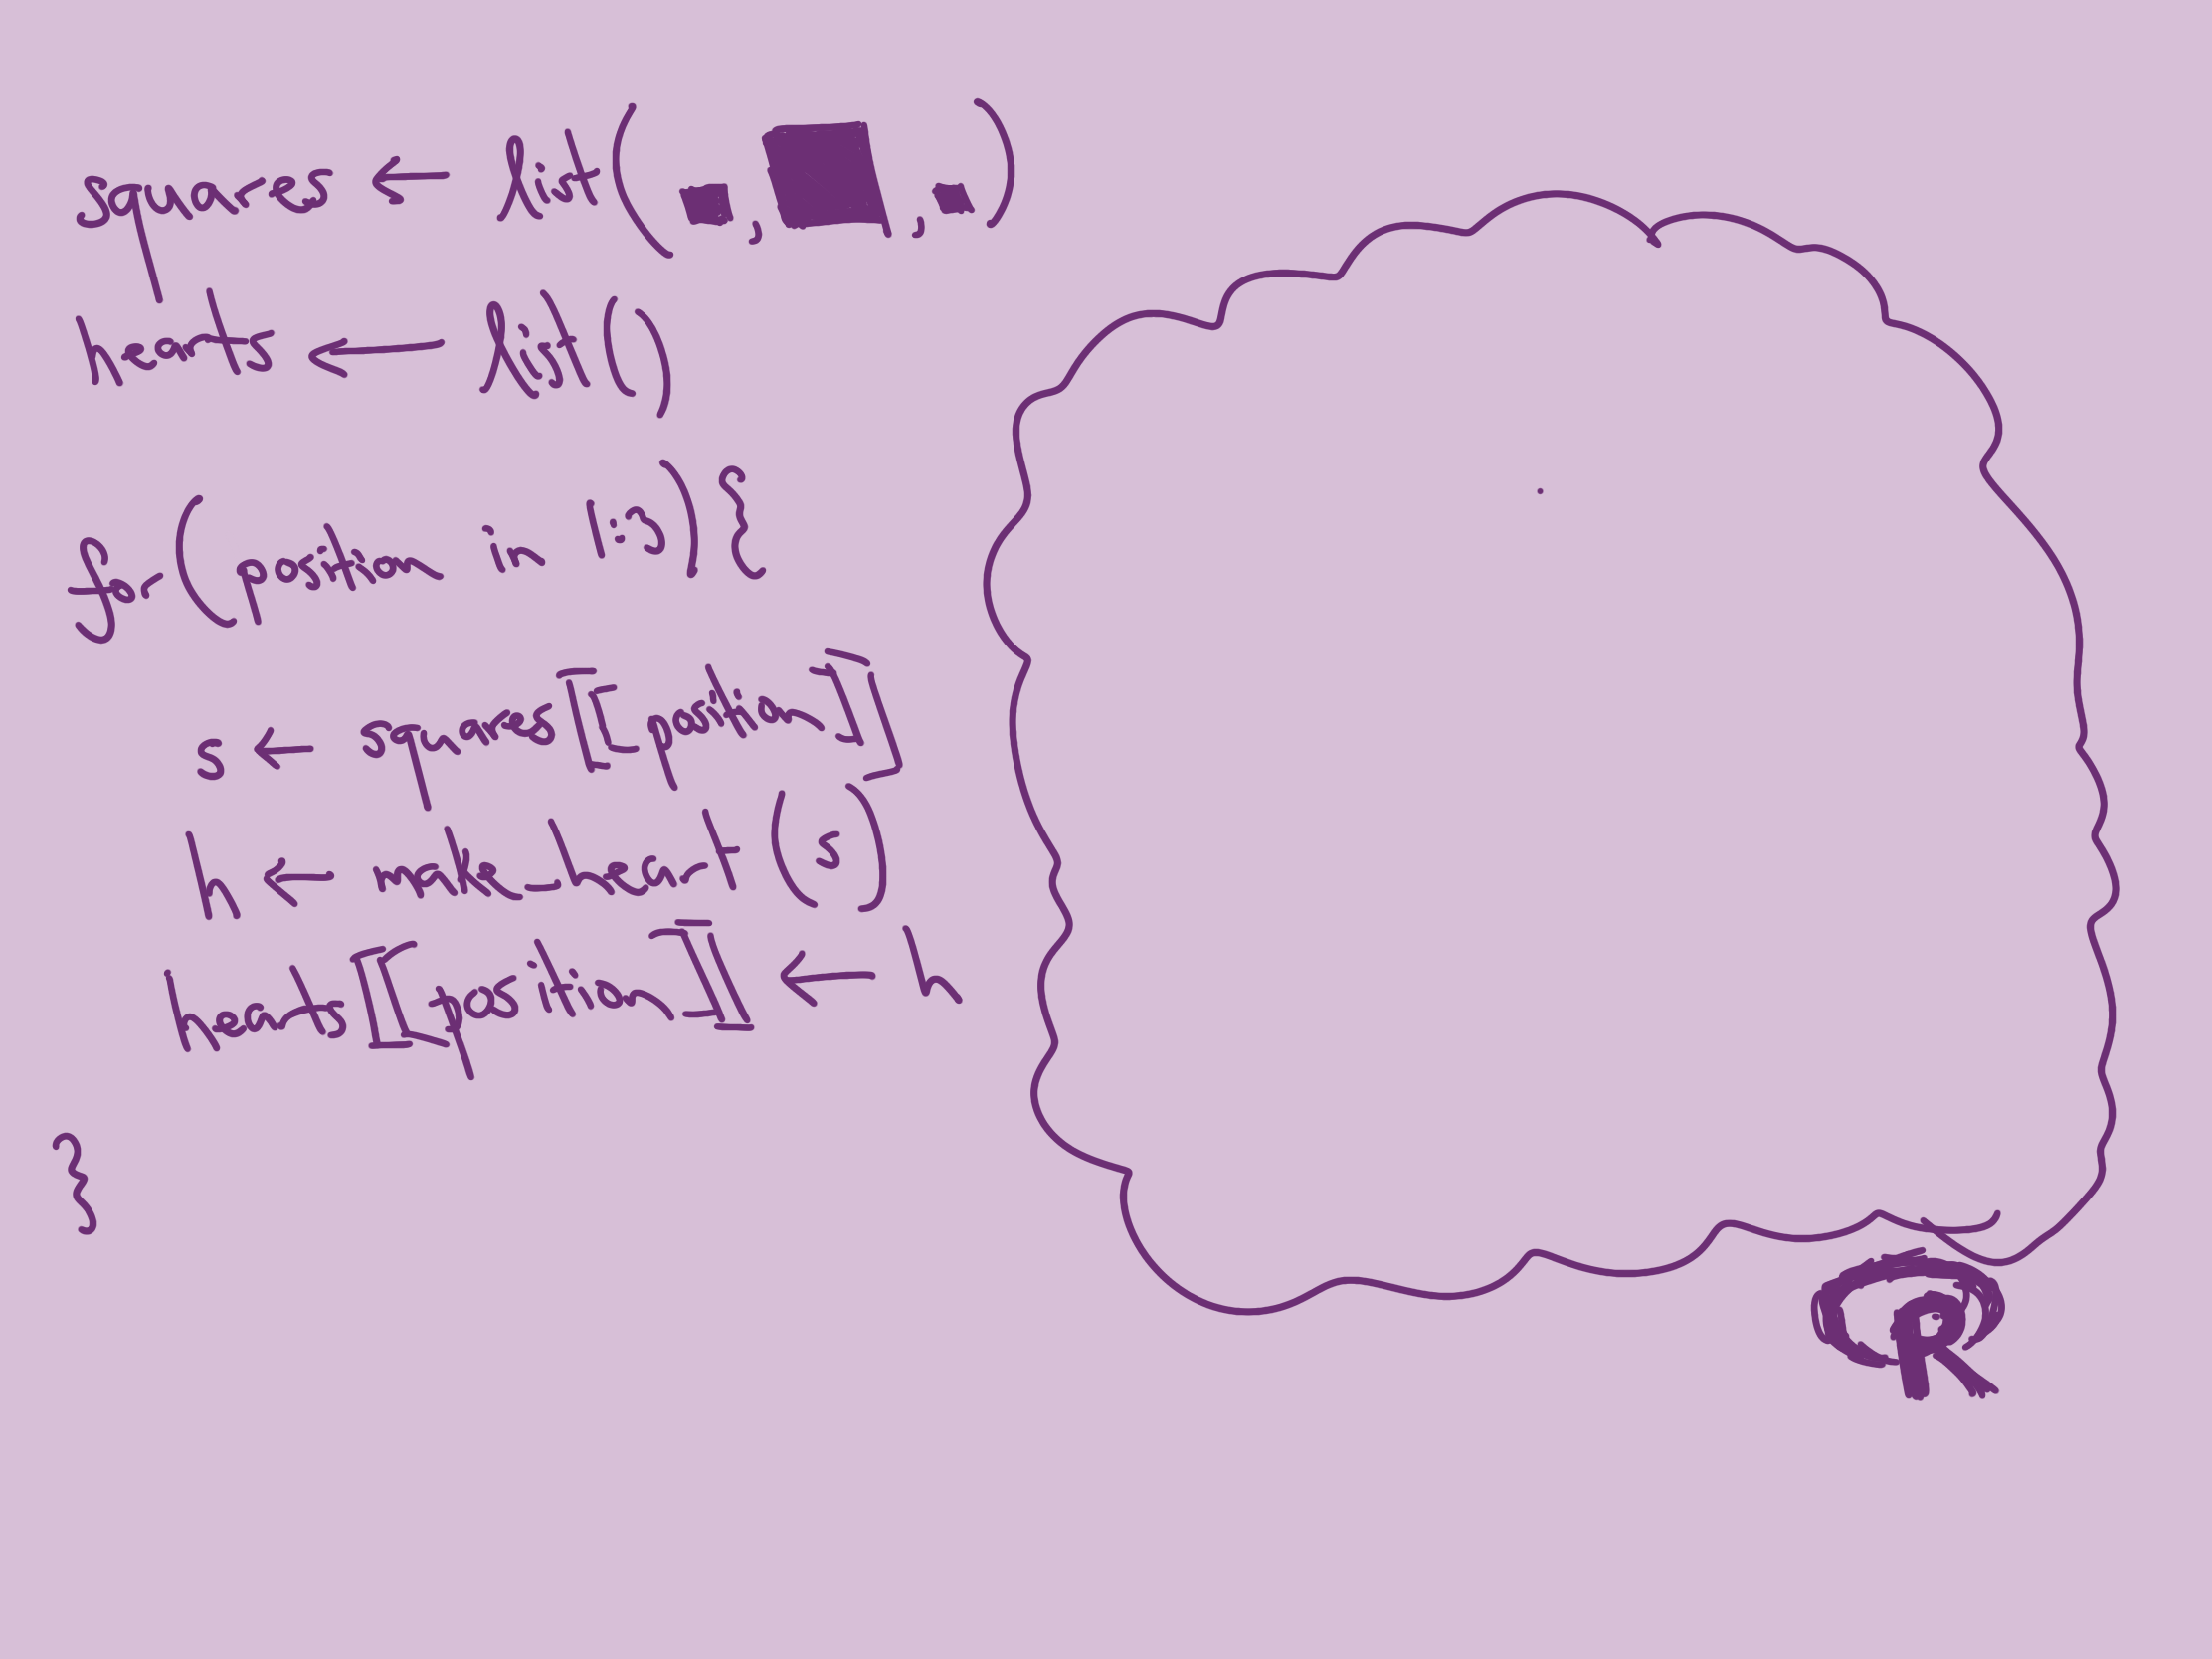 squares ← list(■, ■, ■)
hearts ← list()
for (position in 1:3) {
s ← squares[[position]]
h ← make_heart(s)
hearts[[position]] ← h
}
R